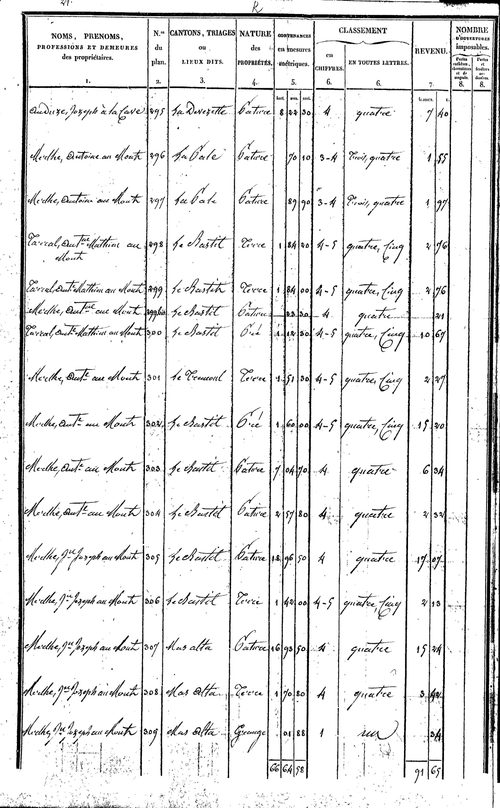 NOMS, PRENOMS, PROFESSIONS ET DEMEURES des propriétaires. | N.os du plan. | CANTONS, TRIAGES ou LIEUX DITS. | NATURE des PROPRIÉTÉS. | CONTENANCES en mesures métriques. | CLASSEMENT en CHIFFRES. | EN TOUTES LETTRES. | REVENU. | NOMBRE D'OUVERTURES imposables.
1. 2. 3. 4. 5. 6. 6. 7. 8. 8.
Joseph à la Cave 295 La Devezette Pature 8 22 30 4 quatre 7 40
Merlhe, Antoine au Monts 296 La Pale Pature 70 10 3-4 Trois, quatre 1 55
Merlhe, Antoine au Monts 297 La Pale Pature 89 90 3-4 Trois, quatre 1 97
Tarral, Ant.ne Mathieu au Monts 298 Le Bastit Terre 1 84 20 4-5 quatre, Cinq 2 76
Tarral, Ant.e Mathieu au Monts 299 Le Bastit Terre 1 84 00 4-5 quatre, Cinq 2 76
Merlhe, Ant.ne au Monts 299 bis Le Bastit Pature 23 30 4 quatre 21
Tarral, Ant.e Mathieu au Monts 300 Le Bastit Pré 1 12 30 4-5 quatre, Cinq 10 67
Merlhe, Ant.e au Monts 301 Terre 1 51 30 4-5 quatre, Cinq 2 27
Merlhe, Ant.e au Monts 302 Le Bastit Pré 1 60 00 4-5 quatre, Cinq 15 20
Merlhe, Ant.e au Monts 303 Le Bastit Pature 7 04 70 4 quatre 6 34
Merlhe, Ant.e au Monts 304 Le Bastit Pature 2 57 80 4 quatre 2 32
Merlhe, Joseph au Monts 305 Le Bastit Pature 18 96 50 4 quatre 17 07
Merlhe, Joseph au Monts 306 Le Bastit Terre 1 42 00 4-5 quatre, Cinq 2 13
Merlhe, Joseph au Monts 307 Mas alta Pature 16 93 50 4 quatre 15 24
Merlhe, Joseph au Monts 308 Mas alta Terre 1 70 80 4 quatre 3 42
Merlhe, Joseph au Monts 309 Mas alta Grange 01 88 1 un 34
66 64 58 91 65